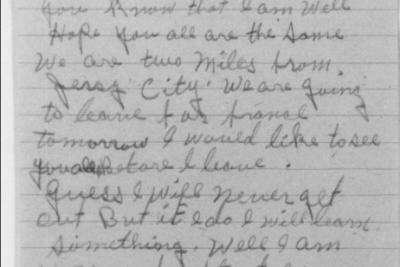 you know that I am well
Hope you all are the same
We are two miles from.
Jersy City. We are going
to leave for france
tomorrow I would like to see
you all before I leave.
Guess I will never get
out But if I do I will learn
Something. Well I am